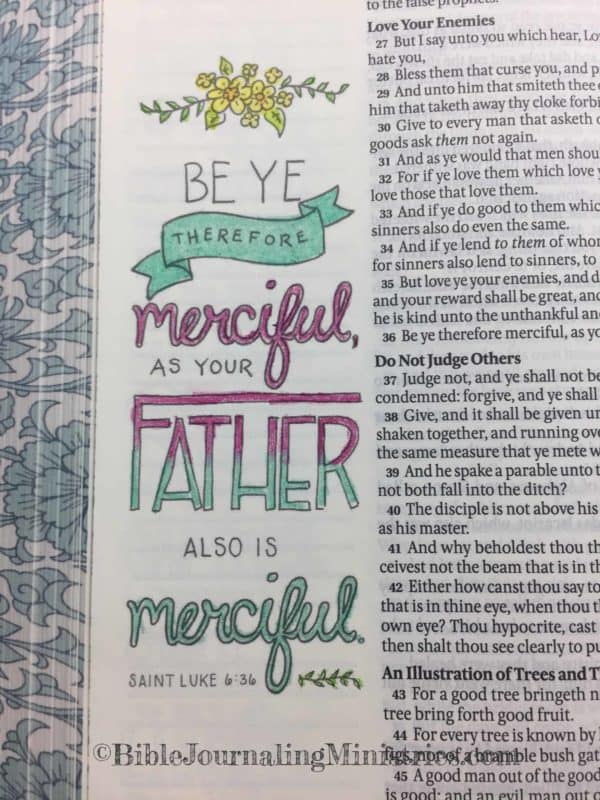 BE YE
THEREFORE
merciful,
AS YOUR
FATHER
ALSO IS
merciful.
SAINT LUKE 6:36
to the false prophets.
Love Your Enemies
27 But I say unto you which hear, Lov
hate you,
28 Bless them that curse you, and p
29 And unto him that smiteth thee o
him that taketh away thy cloke forbi
30 Give to every man that asketh o
goods ask them not again.
31 And as ye would that men shou
32 For if ye love them which love y
love those that love them.
33 And if ye do good to them whic
sinners also do even the same.
34 And if ye lend to them of whom
for sinners also lend to sinners, to
35 But love ye your enemies, and d
and your reward shall be great, and
he is kind unto the unthankful and
36 Be ye therefore merciful, as yo
Do Not Judge Others
37 Judge not, and ye shall not be
condemned: forgive, and ye shall
38 Give, and it shall be given un
shaken together, and running over
the same measure that ye mete w
39 And he spake a parable unto t
not both fall into the ditch?
40 The disciple is not above his
as his master.
41 And why beholdest thou th
ceivest not the beam that is in th
42 Either how canst thou say to
that is in thine eye, when thou th
own eye? Thou hypocrite, cast
then shalt thou see clearly to pu
An Illustration of Trees and T
43 For a good tree bringeth n
tree bring forth good fruit.
44 For every tree is known by
figs, nor of a bramble bush gat
45 A good man out of the good
is good; and an evil man out of
©BibleJournalingMinistries.com